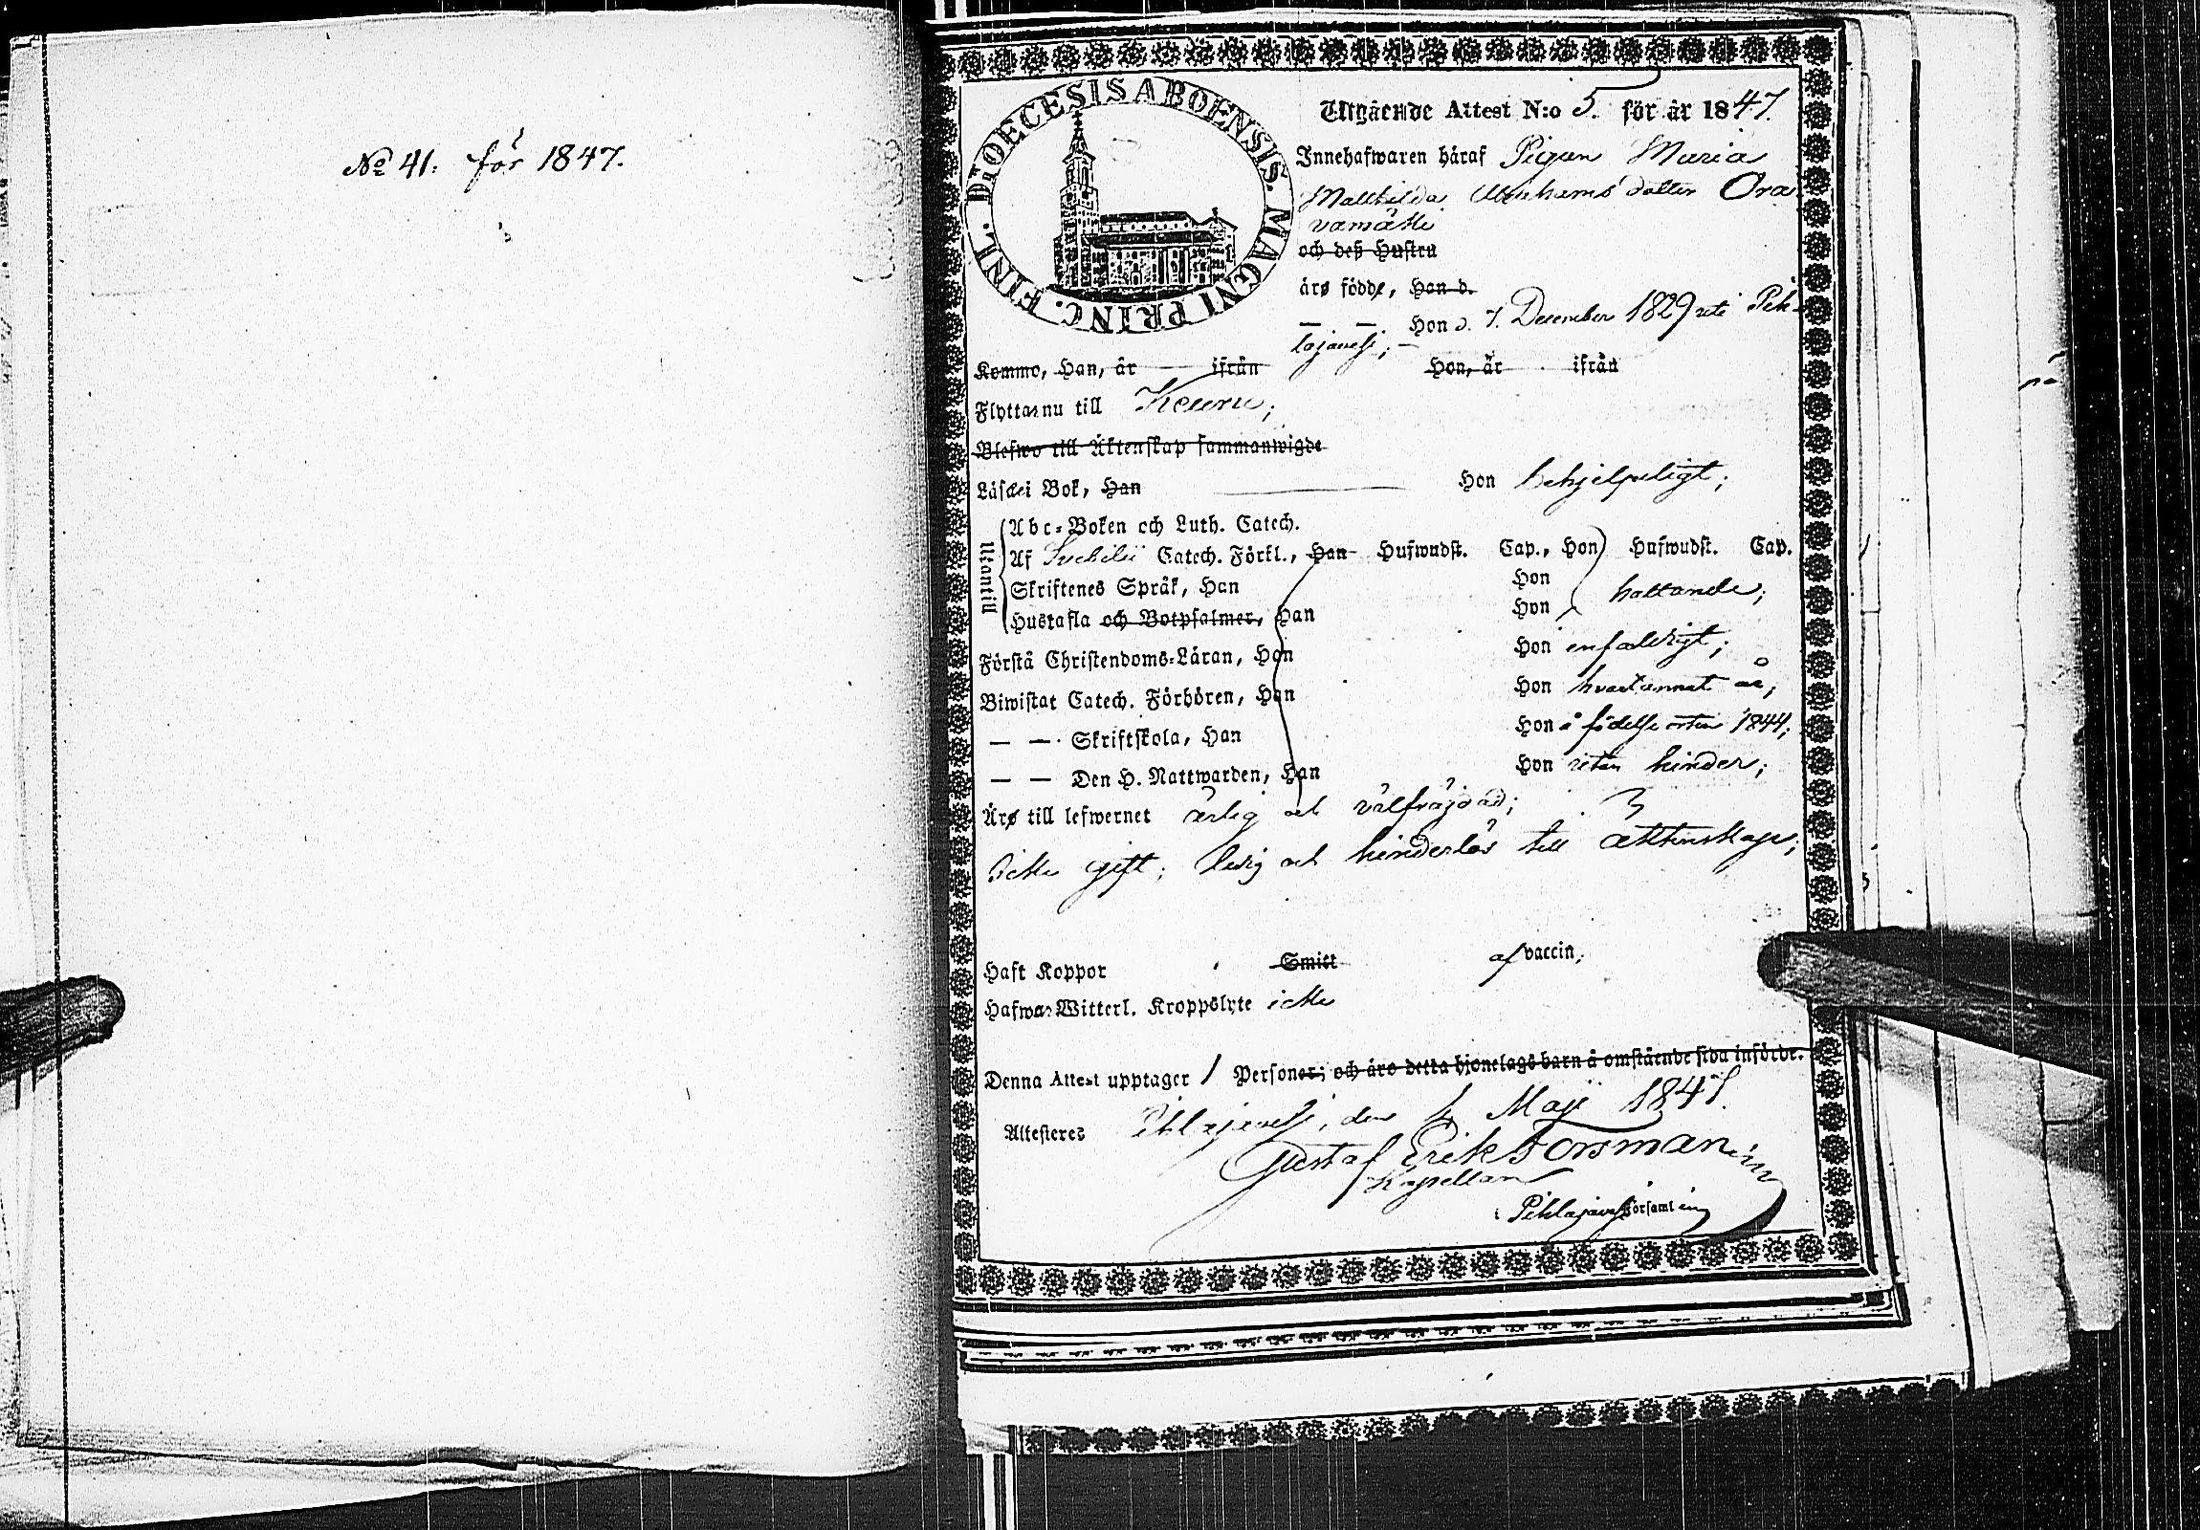 No 41. för 1847.
DIOECESIS ABOENSIS. MAGNI PRINC. FINL.
Utgående Attest N:o 5. för år 1847.
Innehafwaren häraf Pigan Maria
Mathilda Abrahams dotter Ora
vamäki
och deß Hustru
äro födde, Han d.
— — Hon d. 7. December 1829 uti Pih-
lajavesi; —
Kommo, Han, år ifrån Hon, år ifrån
Flyttar nu till Keuru;
Blefwo till Äktenskap sammanwigde
Läser i Bok, Han Hon behjelpeligt;
Utantill
Abc-Boken och Luth. Catech.
Af Svebelii Catech. Förkl., Han Hufwudst. Cap., Hon Hufwudst. Cap.
Skriftenes Språk, Han Hon
Hustafla och Botpsalmer, Han Hon haltande;
Förstå Christendoms-Läran, Han Hon enfaldigt;
Biwistat Catech. Förhören, Han Hon hvartannat år;
— — Skriftskola, Han Hon å födelse orten 1844;
— — Den H. Nattwarden, Han Hon utan hinder;
Äro till lefwernet ärlig och välfräjdad;
Icke gift; ledig och hinderlös till äktenskap;
Haft Koppor Smitt af vaccin;
Hafwa Witterl. Kroppslyte icke
Denna Attest upptager 1 Personer; och äro detta hjonelags barn å omstående sida införde.
Attesteres Pihlajavesi, den 4 Maji 1847.
Gustaf Erik Forsman
Kapellan
i Pihlajavesi Församling